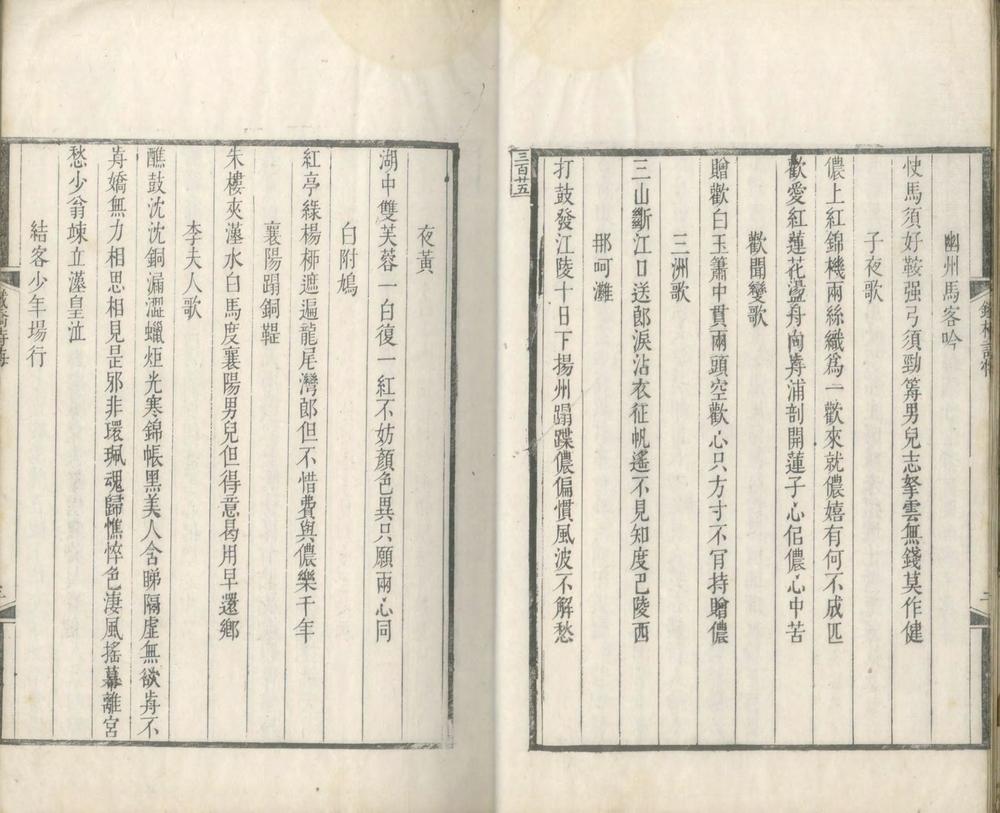 幽州馬客吟
使馬須好鞍强弓須勁笴男兒志拏雲無錢莫作健
子夜歌
儂上紅錦機兩絲織爲一歡來就儂嬉有何不成匹
歡愛紅蓮花盪舟向歬浦剖開蓮子心侣儂心中苦
歡聞變歌
贈歡白玉簫中貫兩頭空歡心只方寸不肎持贈儂
三洲歌
三山斷江口送郎淚沾衣征帆遙不見知度巴陵西
那呵灘
打鼓發江陵十日下揚州蹋蹀儂偏慣風波不解愁
三百廿五
夜黃
湖中雙芙蓉一白復一紅不妨顏色異只願兩心同
白附鳩
紅亭綠楊桺遮遍龍尾灣郎但不惜費與儂樂千年
襄陽蹋銅鞮
朱樓夾漢水白馬度襄陽男兒但得意曷用早還鄉
李夫人歌
譙鼓沈沈銅漏澀蠟炬光寒錦帳黑美人含睇隔虛無欲歬不
歬嬌無力相思相見是邪非環珮魂歸憔悴色淒風搖幕離宮
愁少翁竦立漢皇泣
結客少年場行